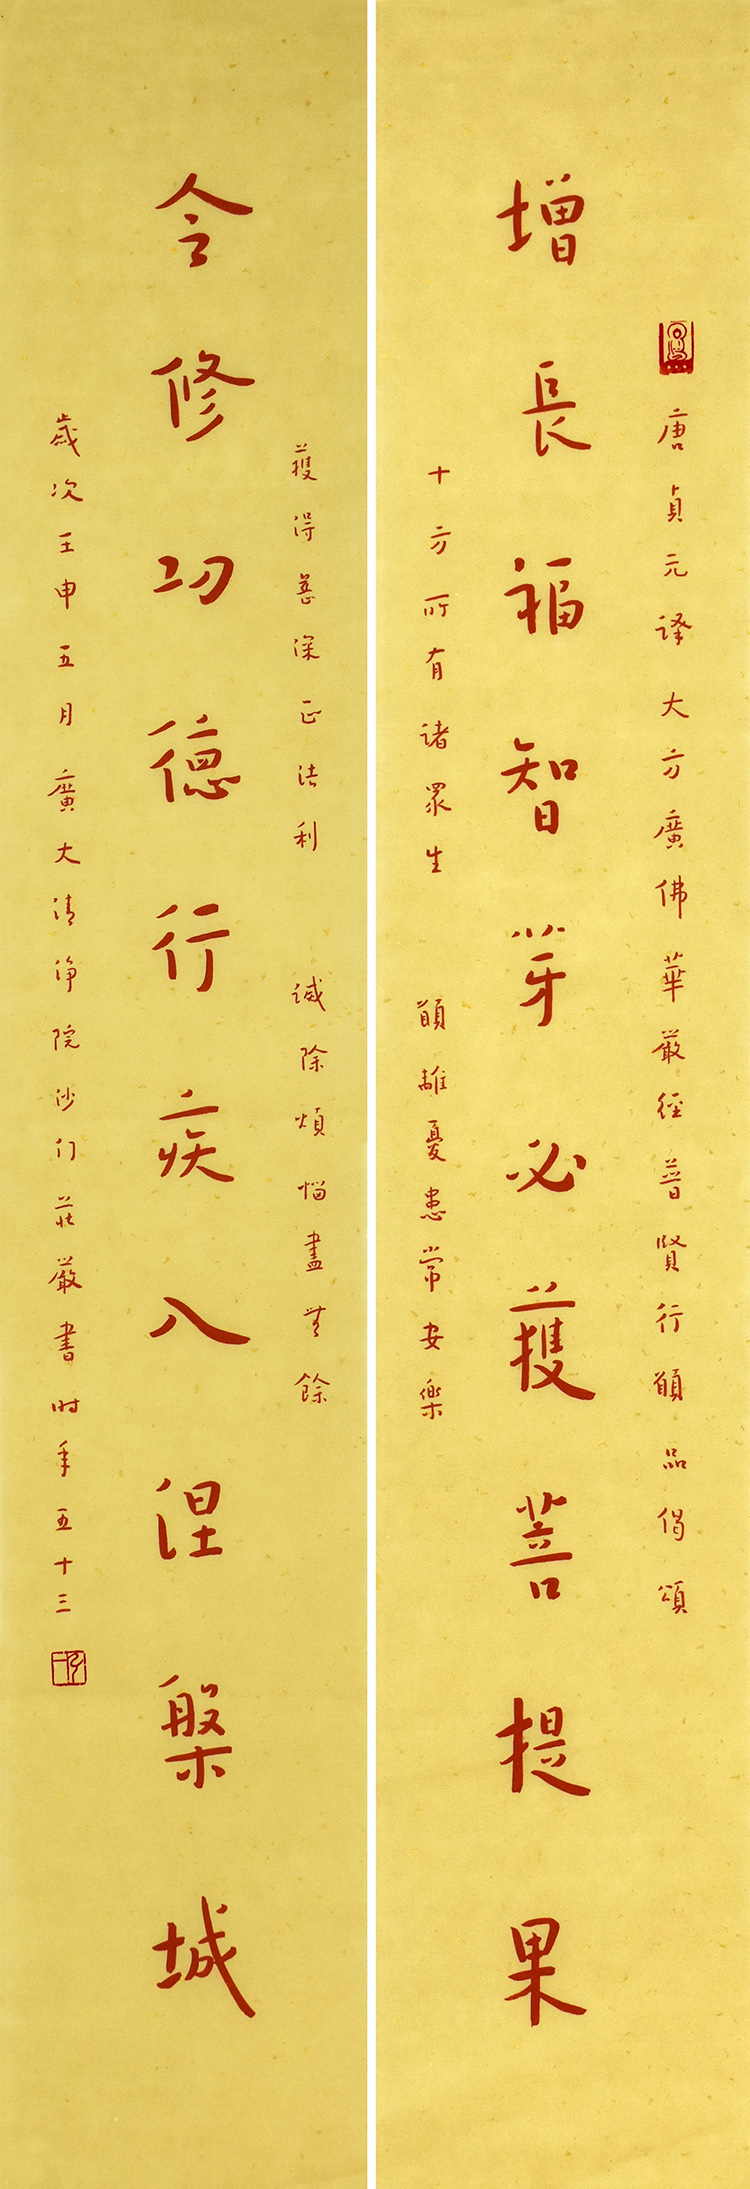 唐貞元譯大方廣佛華嚴經普賢行願品偈頌
增長福智芽必獲菩提果
十方所有諸眾生 願離憂患常安樂
獲得甚深正法利 滅除煩惱盡無餘
令修功德行疾入涅槃城
歲次壬申五月廣大清淨院沙门莊嚴書时年五十三